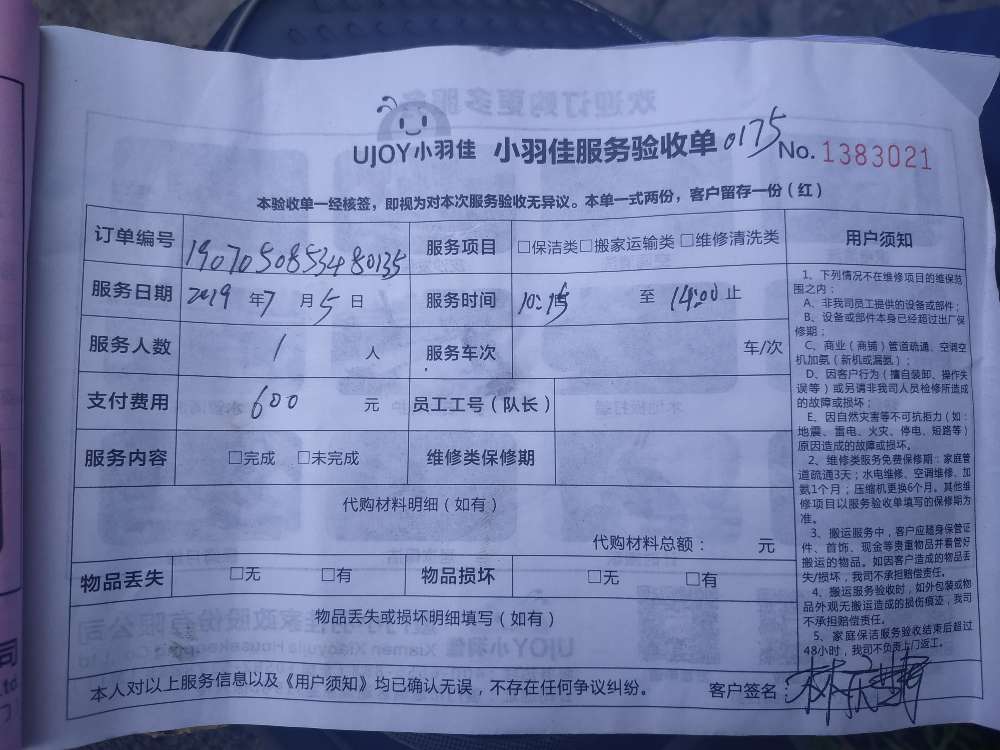 UJOY小羽佳 小羽佳服务验收单 0175 No. 1383021
本验收单一经核签，即视为对本次服务验收无异议。本单一式两份，客户留存一份（红）
订单编号 1907050853480135 服务项目 □保洁类□搬家运输类 □维修清洗类
服务日期 2019 年 7 月 5 日 服务时间 10:15 至 14:00 止
服务人数 1 人 服务车次 车/次
支付费用 600 元 员工工号（队长）
服务内容 □完成 □未完成 维修类保修期
代购材料明细（如有）
代购材料总额： 元
物品丢失 □无 □有 物品损坏 □无 □有
物品丢失或损坏明细填写（如有）
本人对以上服务信息以及《用户须知》均已确认无误，不存在任何争议纠纷。 客户签名：
用户须知
1、下列情况不在维修项目的维保范
围之内：
A、非我司员工提供的设备或部件；
B、设备或部件本身已经超过出厂保
修期；
C、商业（商铺）管道疏通、空调空
机加氨（新机或漏氨）；
D、因客户行为（擅自装卸、操作失
误等）或另请非我司人员检修所造成
的故障或损坏；
E、因自然灾害等不可抗拒力（如：
地震、雷电、火灾、停电、短路等）
原因造成的故障或损坏。
2、维修类服务免费保修期：家庭管
道疏通3天；水电维修、空调维修、加
氨1个月；压缩机更换6个月。其他维
修项目以服务验收单填写的保修期为
准。
3、搬运服务中，客户应随身保管证
件、首饰、现金等贵重物品并看管好
搬运的物品。如因客户造成的物品丢
失/损坏，我司不承担赔偿责任。
4、搬运服务验收时，如外包装或物
品外观无搬运造成的损伤痕迹，我司
不承担赔偿责任。
5、家庭保洁服务验收结束后超过
48小时，我司不负责上门返工。